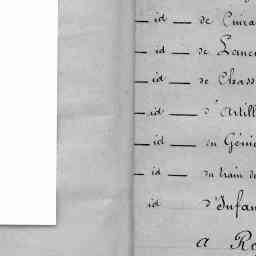 — id — de Cuira
— id — de Lanci
— id — de Chass
— id — d'Artill
— id — du Génie
— id — du train de
id d'Infan
a Re